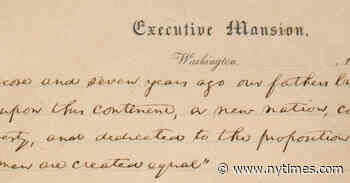 Executive Mansion,
Washington, 1
score and seven years ago our fathers br
upon this continent, a new nation, co
erty, and dedicated to the proposition
men are created equal"
nytimes.com